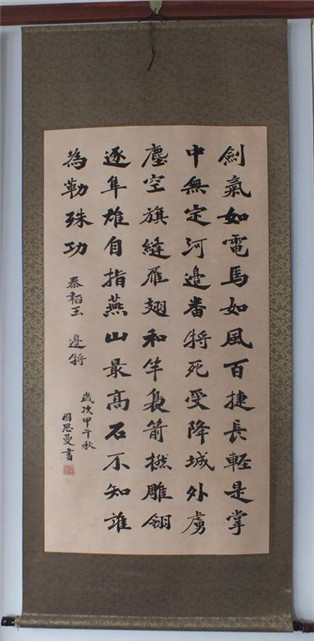 劍氣如電馬如風百捷長輕是掌
中無定河邊番將死受降城外虜
塵空旗縫雁翅和竿裊箭撚雕翎
逐隼雄自指燕山最高石不知誰
為勒殊功 秦韜玉 邊將
歲次甲午秋
思曼書